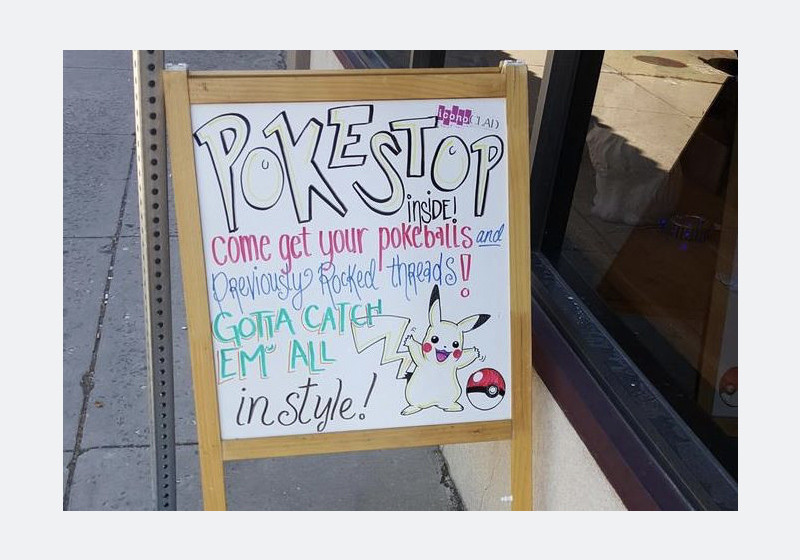 iconoCLAD
POKESTOP
inside!
come get your pokeballs and
Previously Rocked threads!
GOTTA CATCH
EM' ALL
in style!